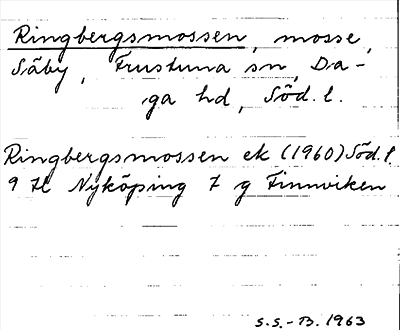 Ringbergsmossen, mosse,
Säby, Frustuna sn, Da-
ga hd, Söd. l.
Ringbergsmossen ek (1960) Söd. l.
9 H Nyköping 7 g Finnviken
S.S.-B. 1963